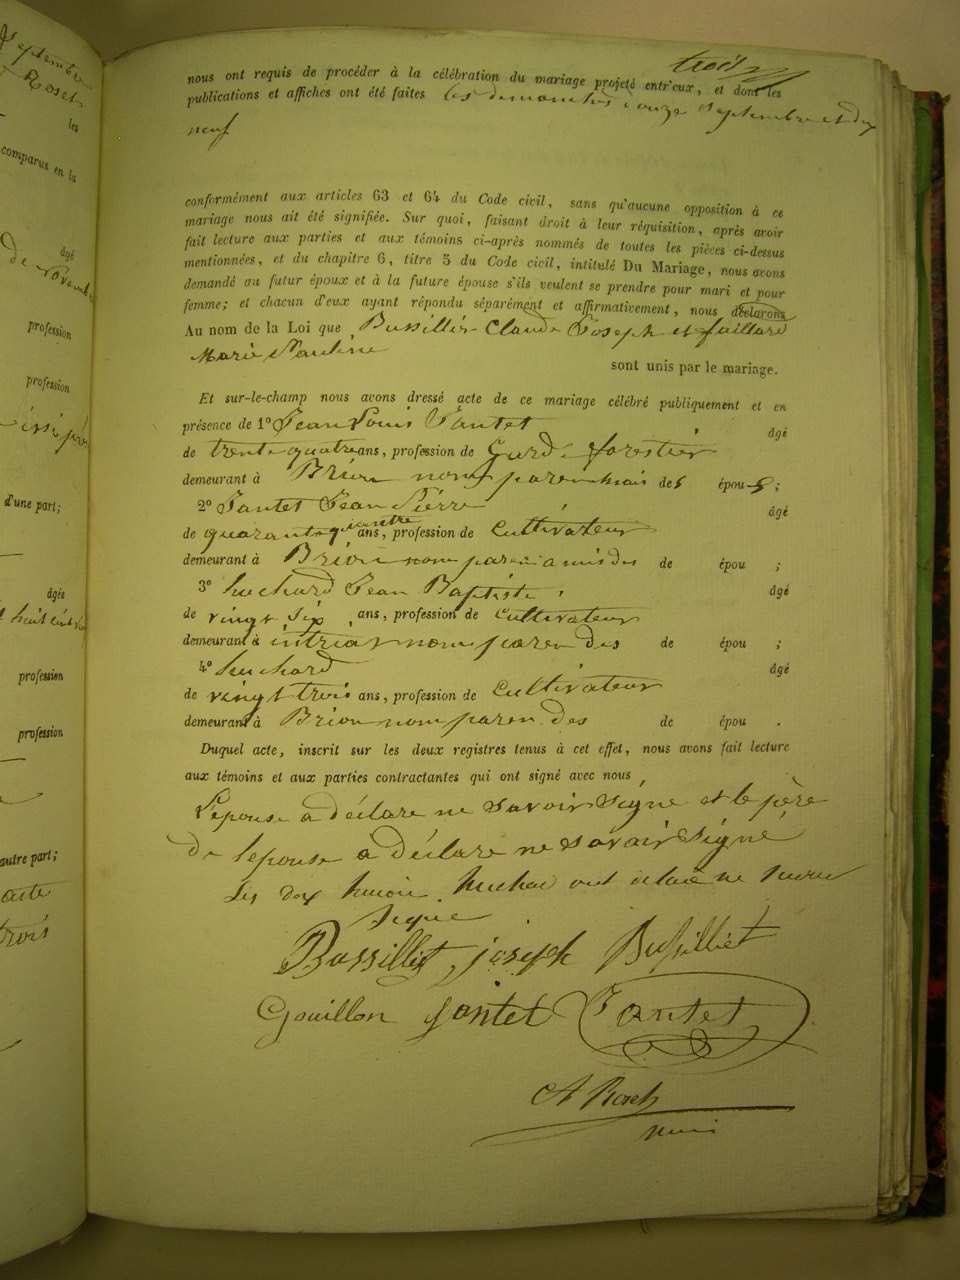 septembre
Roset
les
comparus en la
âgé
de novembre
profession
profession
d'une part;
âgés
profession
profession
autre part;
trois
trois
nous ont requis de procéder à la célébration du mariage projeté entr'eux, et dont les
publications et affiches ont été faites les dimanches onze septembre et dix
neuf
conformément aux articles 63 et 64 du Code civil, sans qu'aucune opposition à ce
mariage nous ait été signifiée. Sur quoi, faisant droit à leur réquisition, après avoir
fait lecture aux parties et aux témoins ci-après nommés de toutes les pièces ci-dessus
mentionnées, et du chapitre 6, titre 5 du Code civil, intitulé Du Mariage, nous avons
demandé au futur époux et à la future épouse s'ils veulent se prendre pour mari et pour
femme; et chacun d'eux ayant répondu séparément et affirmativement, nous déclarons
Au nom de la Loi que Bussillet Claude Joseph et
Marie Pauline
sont unis par le mariage.
Et sur-le-champ nous avons dressé acte de ce mariage célébré publiquement et en
présence de 1º Jean Louis Tantet âgé
de trente quatre ans, profession de Garde forestier
demeurant à Brion non parent mais des épou s;
2º Tantet Jean Pierre âgé
de quarante quatre ans, profession de Cultivateur
demeurant à Brion non paren amis des de épou ;
3º huchard Jean Baptiste âgé
de vingt six ans, profession de cultivateur
demeurant à intriat non paren des de épou ;
4º huchard âgé
de vingt trois ans, profession de Cultivateur
demeurant à Brion non paren des de épou .
Duquel acte, inscrit sur les deux registres tenus à cet effet, nous avons fait lecture
aux témoins et aux parties contractantes qui ont signé avec nous,
L'épouse a déclare ne savoir signe et le père
de lepouse a déclare ne savoir signe
Les huchar ont ne
signe
Bussillet joseph Bussilliet
Gouillon jantet Tantet
A Roset